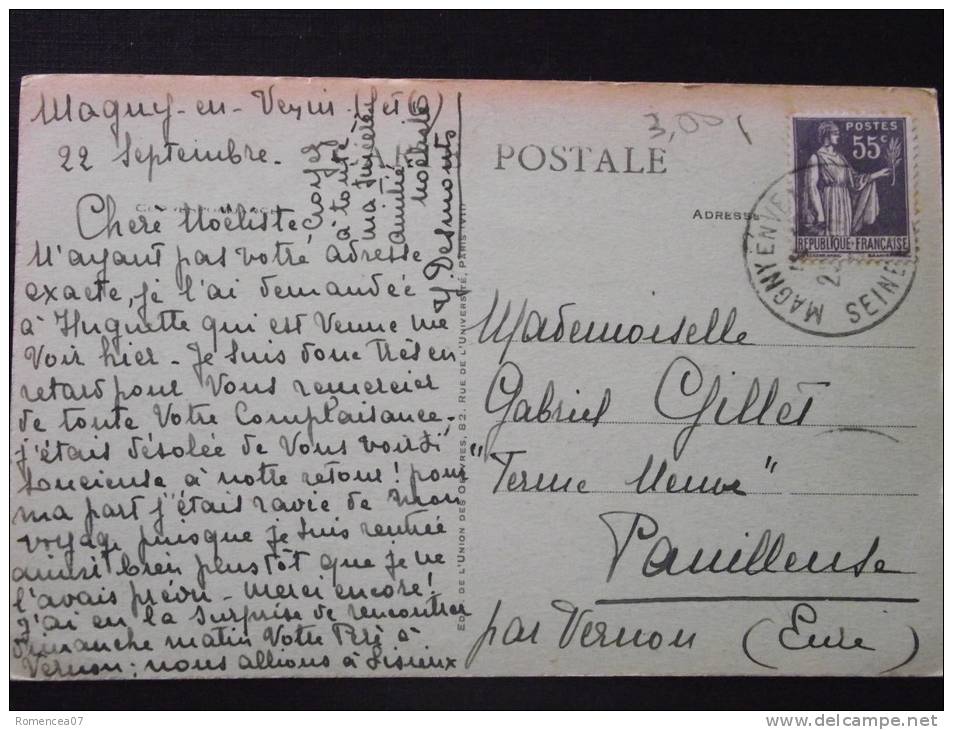 Magny-en-Vexin (Set O)
22 Septembre.
Chère Noëliste
N'ayant pas votre adresse
exacte, je l'ai demandée
à Huguette qui est venue me
voir hier - Je suis donc très en
retard pour vous remercier
de toute votre complaisance,
j'étais désolée de vous voir si
soucieuse à notre retour! pour
ma part j'étais ravie de mon
voyage puisque je suis rentrée
aussi bien plus tôt que je ne
l'avais prévu - merci encore!
J'ai eu la surprise de rencontrer
dimanche matin votre Père à
Vernon; nous allions à Lisieux
Croyez
à toute
ma sincère
amitié
Noëliste
Y. Desmonts
ED. DE L'UNION DES ŒUVRES, 82, RUE DE L'UNIVERSITÉ, PARIS (VII)
POSTALE
3,00
ADRESSE
POSTES
55c
REPUBLIQUE FRANÇAISE
MAGNY EN VE
SEINE
Mademoiselle
Gabriel Gillet
"Ferme Neuve"
Panilleuse
par Vernon (Eure)
Romencea07
www.delcampe.net